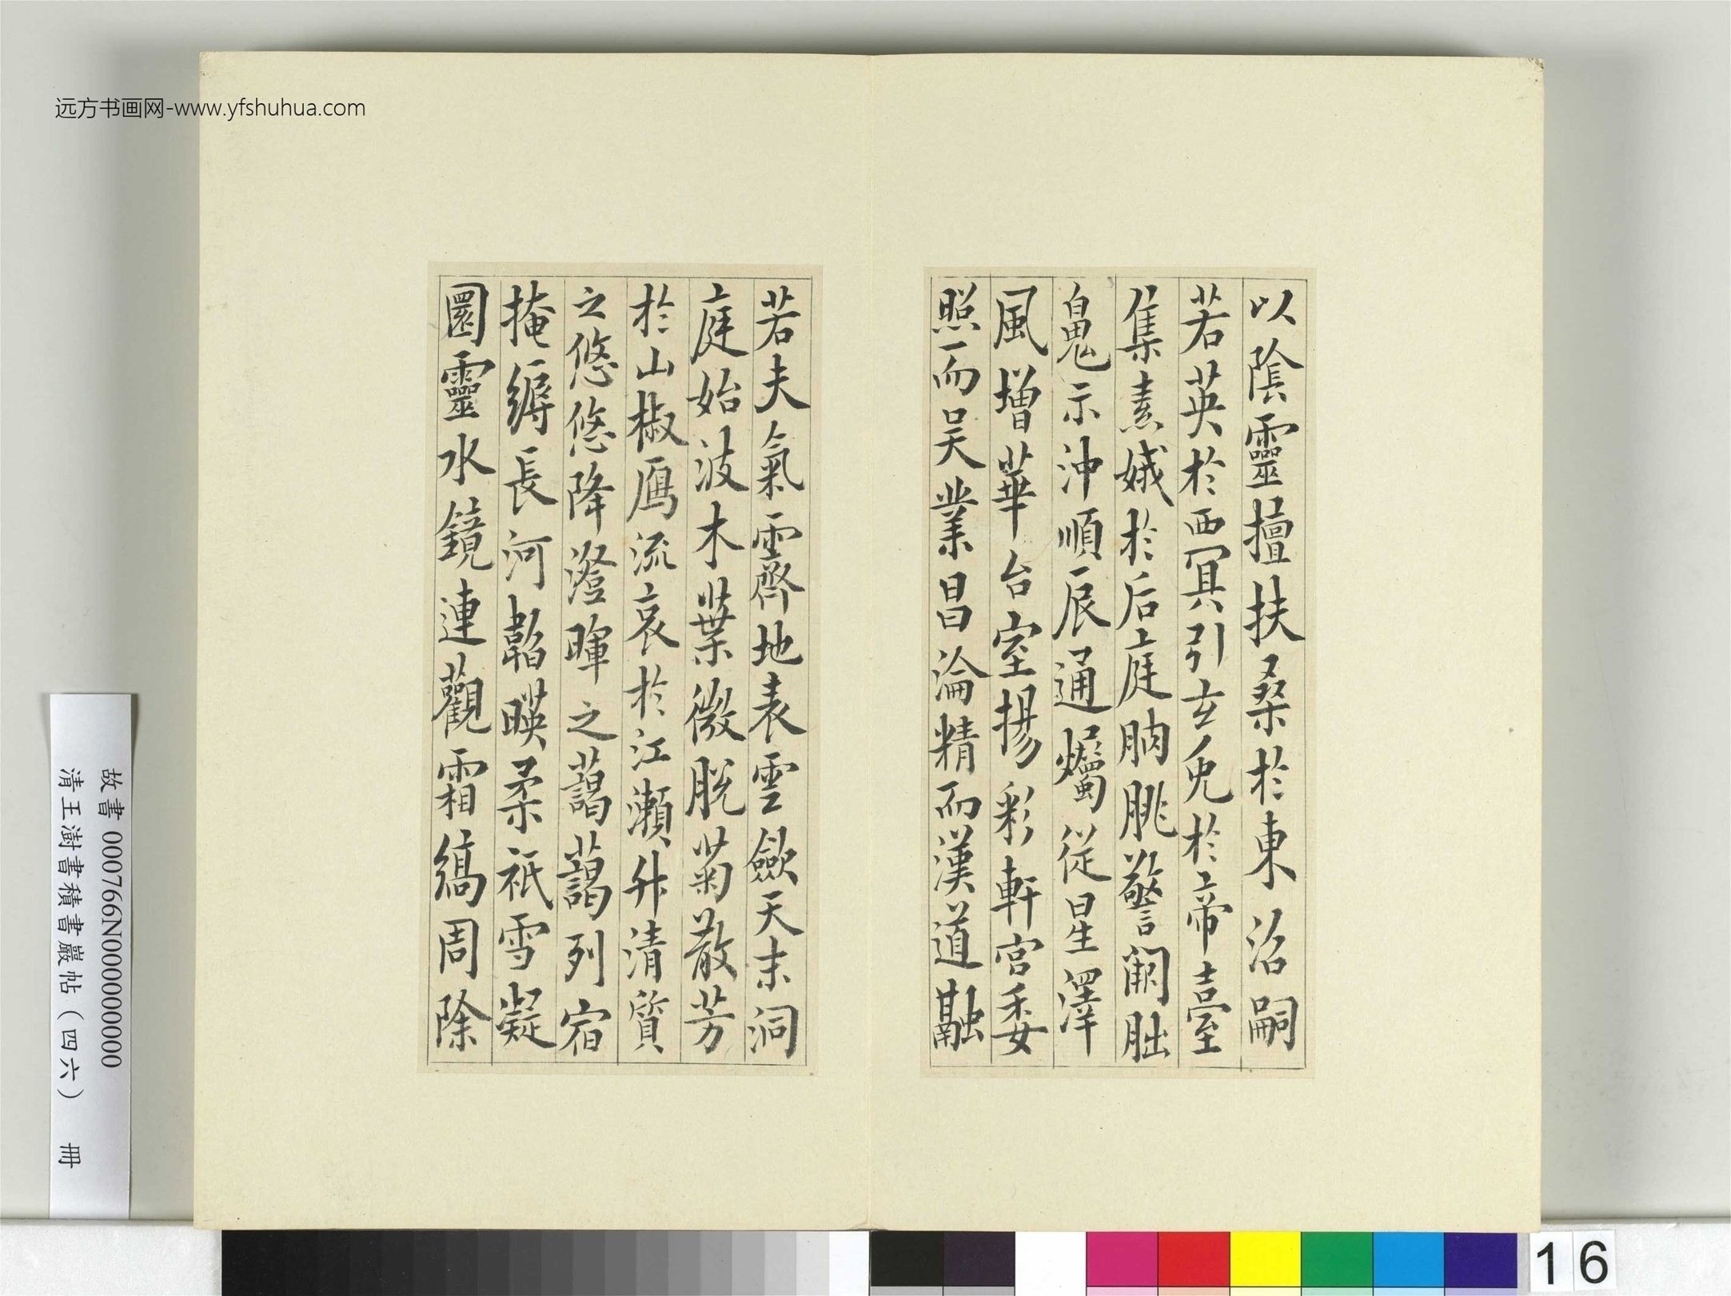 远方书画网-www.yfshuhua.com
以陰靈擅扶桑於東沼嗣
若英於西冥引玄兔於帝臺
集素娥於后庭朒朓警闕朏
魄示沖順辰通爥從星澤
風增華台室揚彩軒宮委
照而吴業昌淪精而漢道融
若夫氣霽地表雲歛天末洞
庭始波木葉微脫菊散芳
於山椒鴈流哀於江瀨升清質
之悠悠降澄暉之藹藹列宿
掩縟長河韜暎柔祇雪凝
圜靈水鏡連觀霜縞周除
故書 000766N000000000
清王澍書積書巖帖（四六） 冊
16